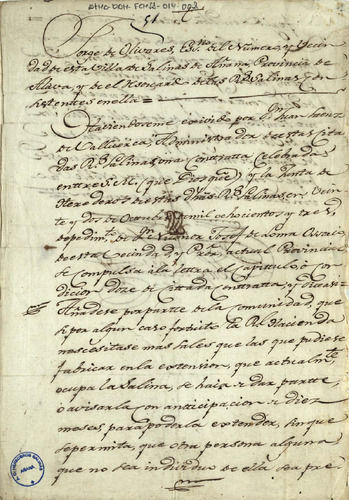 ATHO-DOH-FONDO-014-002
51
Jorge de Olivares, Esno del Numero, y Vecin
dad de esta Villa de Salinas de Añana, Provincia de
Alava, y de el Resguardo de las Rs Salinas, exis
tentes en ella =
Haviendoseme exivido por Dn Juan
de Administrador de estas cita
das Rs Salinas, una Contratta Celebrada
enttre S. M. (que Dios gue) y la Junta de
Herederos de estas dhas Rs Salinas, en Vein
te y dos de Octubre de mil ochocientos y tres,
de pedimto de Dn de Loma Ossorio
de esta Vecindad, y actual Provincia
se compulsa a la letra el Capitulo, o con
dicion Doze de citada contratta, y dice asi
Añadese por partte de la comunidad, que
si por algun caso fortuito la Rl Hacienda
necesitase mas Sales que las que pudiese
fabricar en la extension, que actualmte
ocupa la Salina, se haia de dar partte
o avisarla con anticipacion de diez
meses, para poderla extender, sin que
se permita, que otra persona alguna
que no sea individuo de ella sea pre
AÑANA